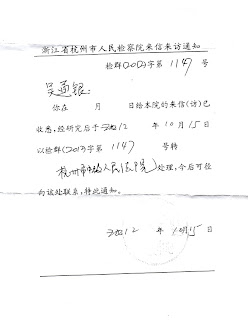 浙江省杭州市人民检察院来信来访通知
检群(2012)字第1147号
吴通银:
你在 月 日给本院的来信(访)已
收悉,经研究后于2012年10月15日
以检群(2012)字第1147号转
杭州市中级人民(法院)处理,今后可径
向该处联系,特此通知。
2012年10月15日